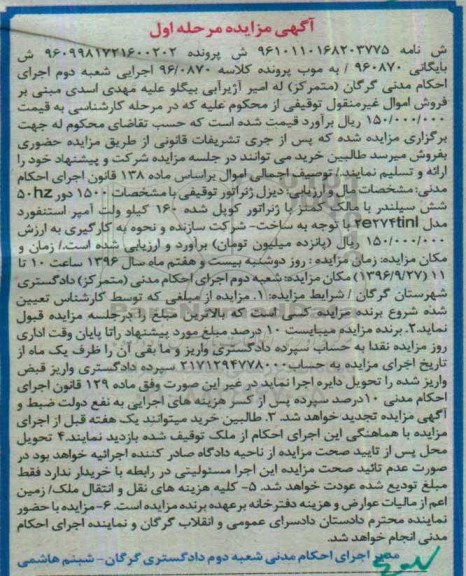 آگهی مزایده مرحله اول
ش نامه ۹۶۱۰۱۱۰۱۶۸۲۰۳۷۷۵ ش پرونده ۹۶۰۹۹۸۱۷۲۱۶۰۰۲۰۲ ش
بایگانی ۹۶۰۸۷۰ / به موب پرونده کلاسه ۹۶/۰۸۷۰ اجرایی شعبه دوم اجرای
احکام مدنی گرگان (متمرکز) له امیر آژیرآبی بیگلو علیه مهدی اسدی مبنی بر
فروش اموال غیرمنقول توقیفی از محکوم علیه که در مرحله کارشناسی به قیمت
۱۵۰/۰۰۰/۰۰۰ ریال برآورد قیمت شده است که حسب تقاضای محکوم له جهت
برگزاری مزایده شده که پس از جری تشریفات قانونی از طریق مزایده حضوری
بفروش میرسد طالبین خرید می توانند در جلسه مزایده شرکت و پیشنهاد خود را
ارائه و تسلیم نمایند./ توصیف اجمالی اموال براساس ماده ۱۳۸ قانون اجرای احکام
مدنی: مشخصات مال و ارزیابی: دیزل ژنراتور توقیفی با مشخصات ۱۵۰۰ دور ۵۰hz
شش سیلندر با مالک کمنز با ژنراتور کوپل شده ۱۶۰ کیلو ولت آمپر استنفورد
مدل ۷e۲۷۴tinl با توجه به ساخت- شرکت سازنده و نحوه به کارگیری به ارزش
۱۵۰/۰۰۰/۰۰۰ ریال (پانزده میلیون تومان) برآورد و ارزیابی شده است./ زمان و
مکان مزایده: زمان مزایده : روز دوشنبه بیست و هفتم ماه سال ۱۳۹۶ ساعت ۱۰ تا
۱۱ (۱۳۹۶/۹/۲۷) مکان مزایده: شعبه دوم اجرای احکام مدنی (متمرکز) دادگستری
شهرستان گرگان / شرایط مزایده: ۱. مزایده از مبلغی که توسط کارشناس تعیین
شده شروع برنده مزایده کسی است که بالاترین مبلغ را درجلسه مزایده قبول
نماید.۲. برنده مزایده میبایست ۱۰ درصد مبلغ مورد پیشنهاد راتا پایان وقت اداری
روز مزایده نقدا به حساب سپرده دادگستری واریز و ما بقی آن را ظرف یک ماه از
تاریخ اجرای مزایده به حساب ۲۱۷۱۲۹۴۷۷۸۰۰۰ سپرده دادگستری واریز قبض
واریز شده را تحویل دایره اجرا نماید در غیر این صورت وفق ماده ۱۲۹ قانون اجرای
احکام مدنی ۱۰درصد سپرده پس از کسر هزینه های اجرایی به نفع دولت ضبط و
آگهی مزایده تجدید خواهد شد. ۳. طالبین خرید میتوانند یک هفته قبل از اجرای
مزایده با هماهنگی این اجرای احکام از ملک توقیف شده بازدید نمایند.۴ تحویل
محل پس از تایید صحت مزایده از ناحیه دادگاه صادر کننده اجرائیه خواهد بود در
صورت عدم تائید صحت مزایده این اجرا مسئولیتی در رابطه با خریدار ندارد فقط
مبلغ تودیع شده عودت خواهد شد. ۵- کلیه هزینه های نقل و انتقال ملک/ زمین
اعم از مالیات عوارض و هزینه دفترخانه برعهده برنده مزایده است. ۶- مزایده با حضور
نماینده محترم دادستان دادسرای عمومی و انقلاب گرگان و نماینده اجرای احکام
مدنی انجام خواهد شد.
مدیر اجرای احکام مدنی شعبه دوم دادگستری گرگان- شبنم هاشمی